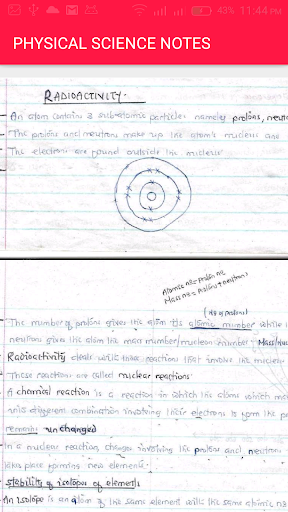 43% 11:44 PM
PHYSICAL SCIENCE NOTES
RADIOACTIVITY.
An atom contains 3 sub-atomic particles namely protons, neutro
The protons and neutrons make up the atom's nucleus and
The electrons are found outside the nucleus
Atomic no = proton no
Mass no = protons + neutrons
(no of protons)
The number of protons gives the atom its atomic number while
neutrons gives the atom the mass number/nucleon number. Mass
Radioactivity deals with those reactions that involve the nucleus
These reactions are called nuclear reactions
A chemical reaction is a reaction in which the atoms which
different combination involving their electrons to form the
remains unchanged
In a nuclear reaction, changes involving the protons and neutrons
take place forming new elements
Stability of isotopes of elements
An isotope is an atom of the same element with the same atomic